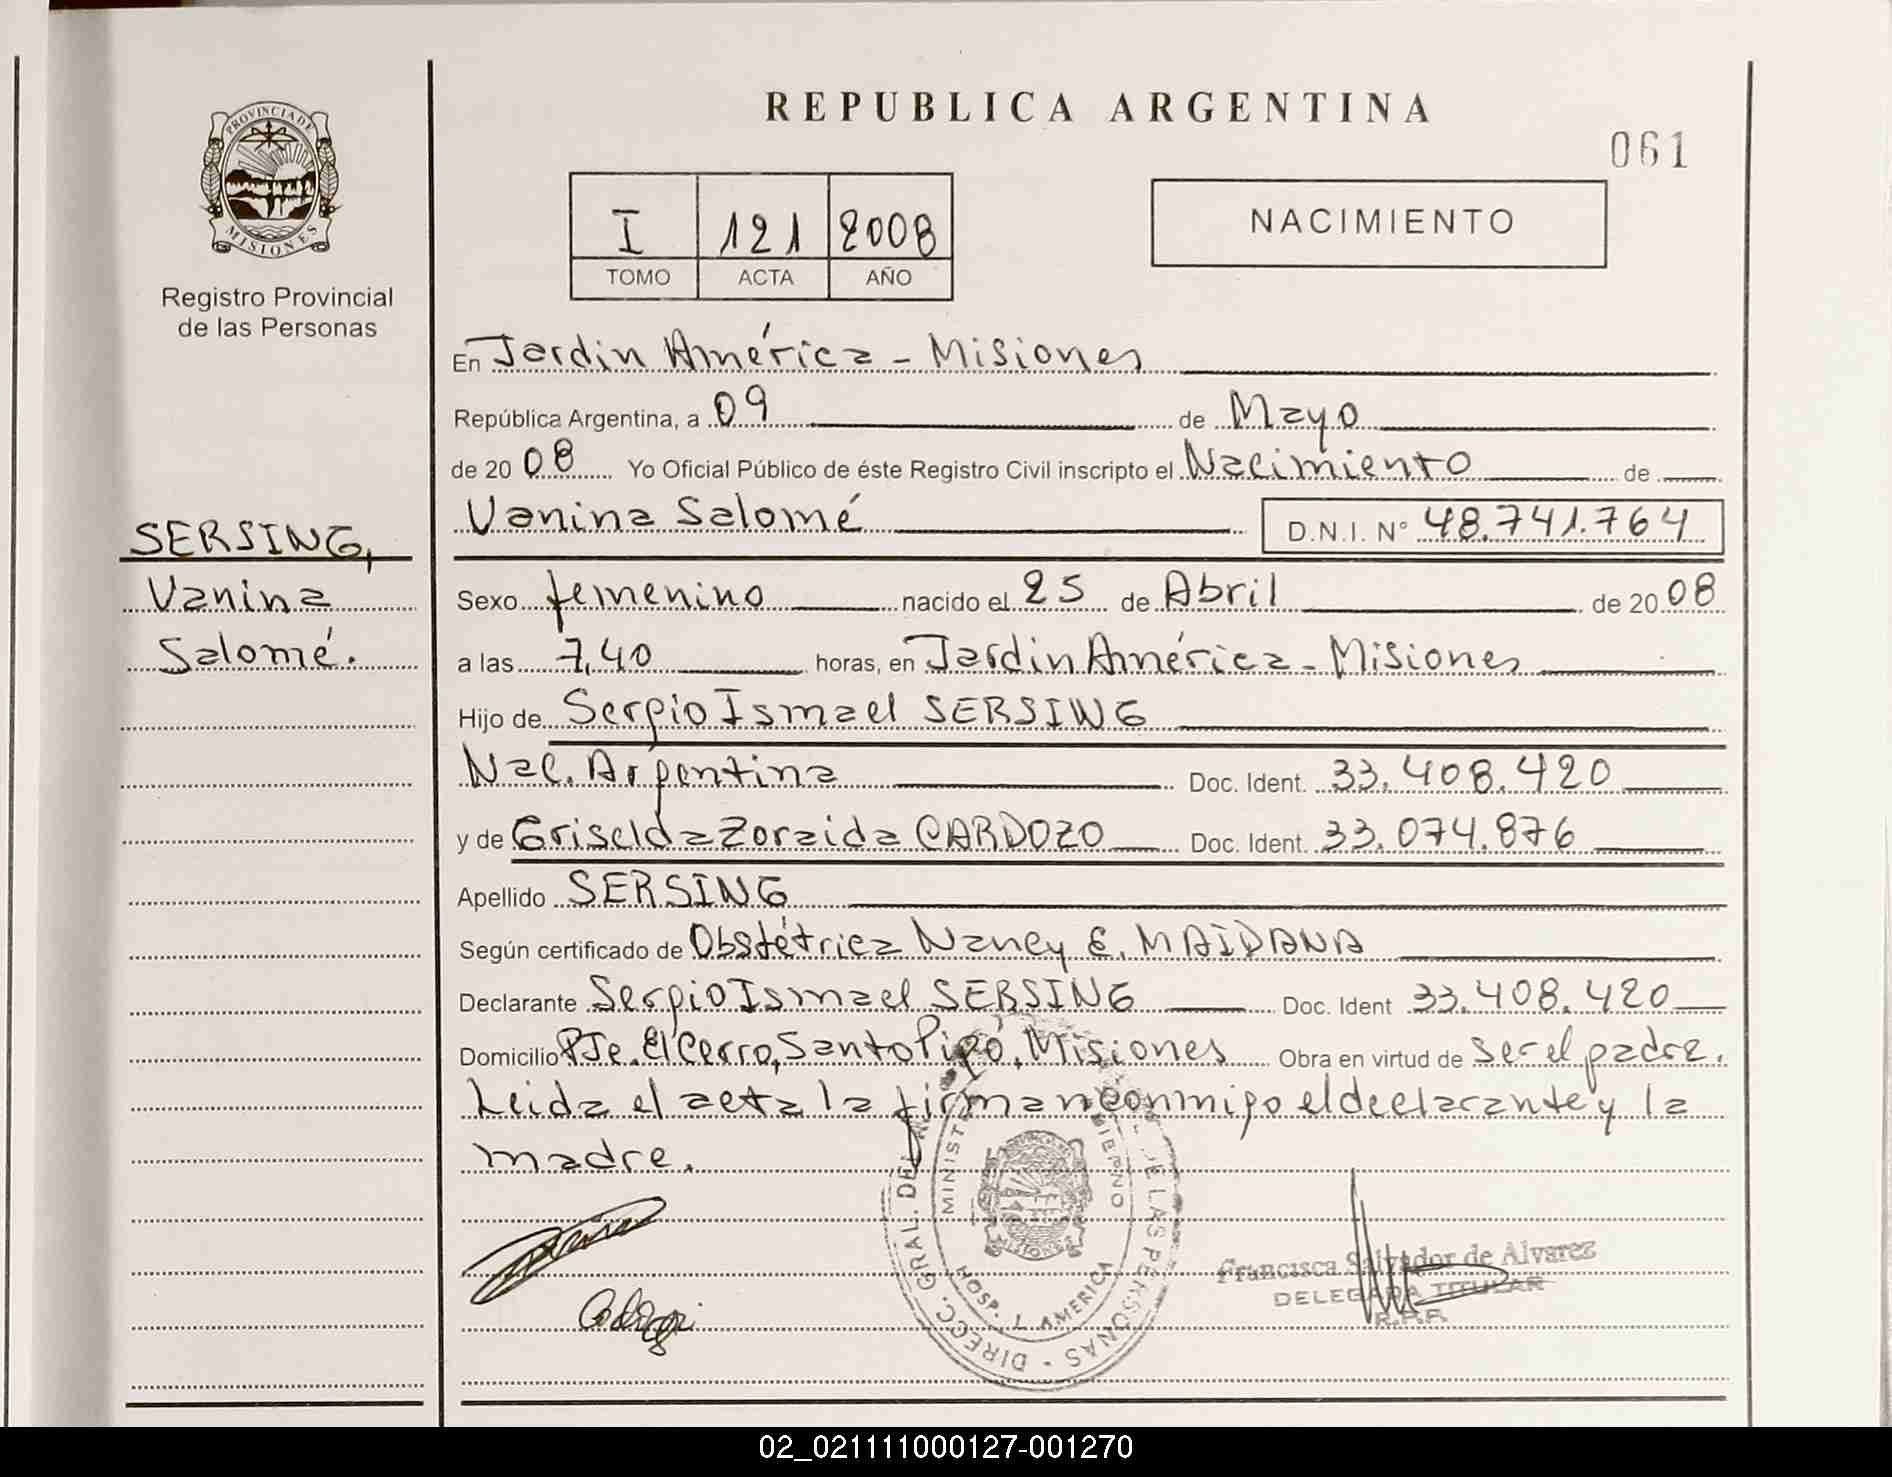 REPUBLICA ARGENTINA
061
PROVINCIA DE
MISIONES
Registro Provincial
de las Personas
I 121 2008
TOMO ACTA AÑO
NACIMIENTO
En Jardin América - Misiones
República Argentina, a 09 de Mayo
de 20 08 Yo Oficial Público de éste Registro Civil inscripto el Nacimiento de
Vanina Salomé D.N.I. N° 48.741.764
SERSING,
Vanina
Salomé.
Sexo femenino nacido el 25 de Abril de 20 08
a las 7,40 horas, en Jardin América - Misiones
Hijo de Sergio Ismael SERSING
Nac. Argentina Doc. Ident. 33.408.420
y de Griselda Zoraida CARDOZO Doc. Ident. 33.074.876
Apellido SERSING
Según certificado de Obstétrica Nancy E. MAIDANA
Declarante Sergio Ismael SERSING Doc. Ident 33.408.420
Domicilio PJe. El Cerro, Santo Pipó, Misiones Obra en virtud de ser el padre.
Leida el acta la firman conmigo el declarante y la
madre.
DIRECC. GRAL. DE LAS PERSONAS
HOSP. J. AMERICA
Francisca Salvador de Alvarez
DELEGADA TITULAR
R.P.P.
02_021111000127-001270